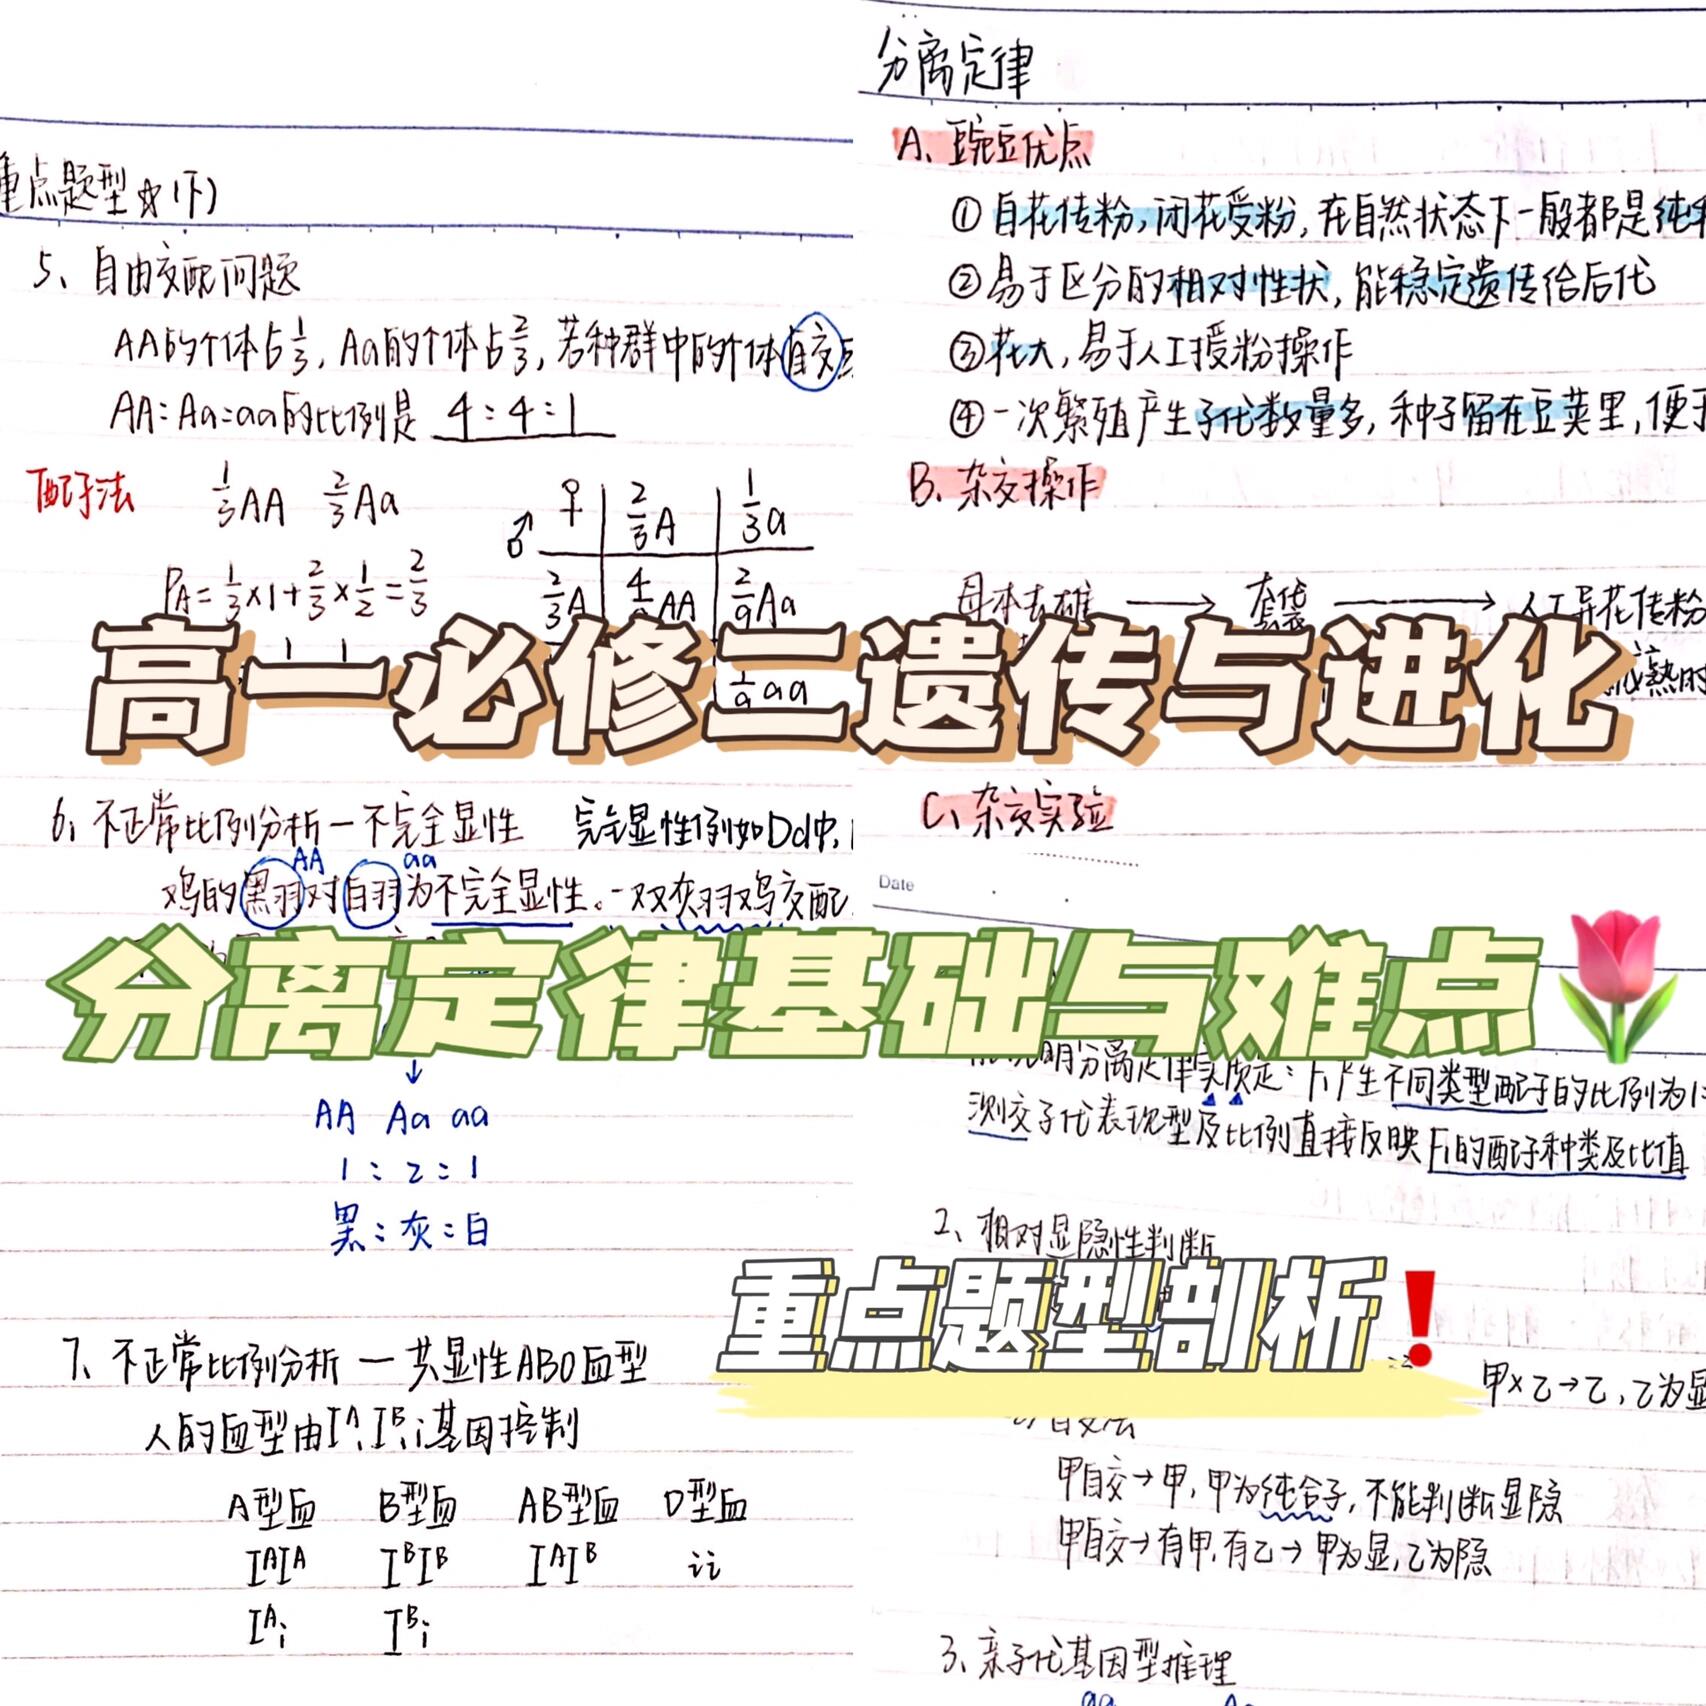 重点题型☆(下)
5、自由交配问题
AA的个体占1/3,Aa的个体占2/3,若种群中的个体自交
AA:Aa:aa的比例是 4:4:1
配子法 1/3AA 2/3Aa
♂ ♀ 2/3A 1/3a
PA=1/3×1+2/3×1/2=2/3
2/3A 4/9AA 2/9Aa
1/9aa
6、不正常比例分析—不完全显性 完全显性例如Dd中,
AA aa
鸡的黑羽对白羽为不完全显性。一双灰羽鸡交配
↓
AA Aa aa
1:2:1
黑:灰:白
7、不正常比例分析—共显性ABO血型
人的血型由IA、IB、i基因控制
A型血 B型血 AB型血 O型血
IAIA IBIB IAIB ii
IAi IBi
分离定律
A、豌豆优点
①自花传粉,闭花受粉,在自然状态下一般都是纯种
②易于区分的相对性状,能稳定遗传给后代
③花大,易于人工授粉操作
④一次繁殖产生子代数量多,种子留在豆荚里,便于
B、杂交操作
母本去雄 → 套袋 → 人工异花传粉
高一必修二遗传与进化
C、杂交实验
Date
分离定律基础与难点
能说明分离定律实质是:F1产生不同类型配子的比例为1:
测交子代表现型及比例直接反映F1的配子种类及比值
2、相对显隐性判断
重点题型剖析❗
甲×乙→乙,乙为显
甲自交→甲,甲为纯合子,不能判断显隐
甲自交→有甲,有乙→甲为显,乙为隐
3、亲子代基因型推理